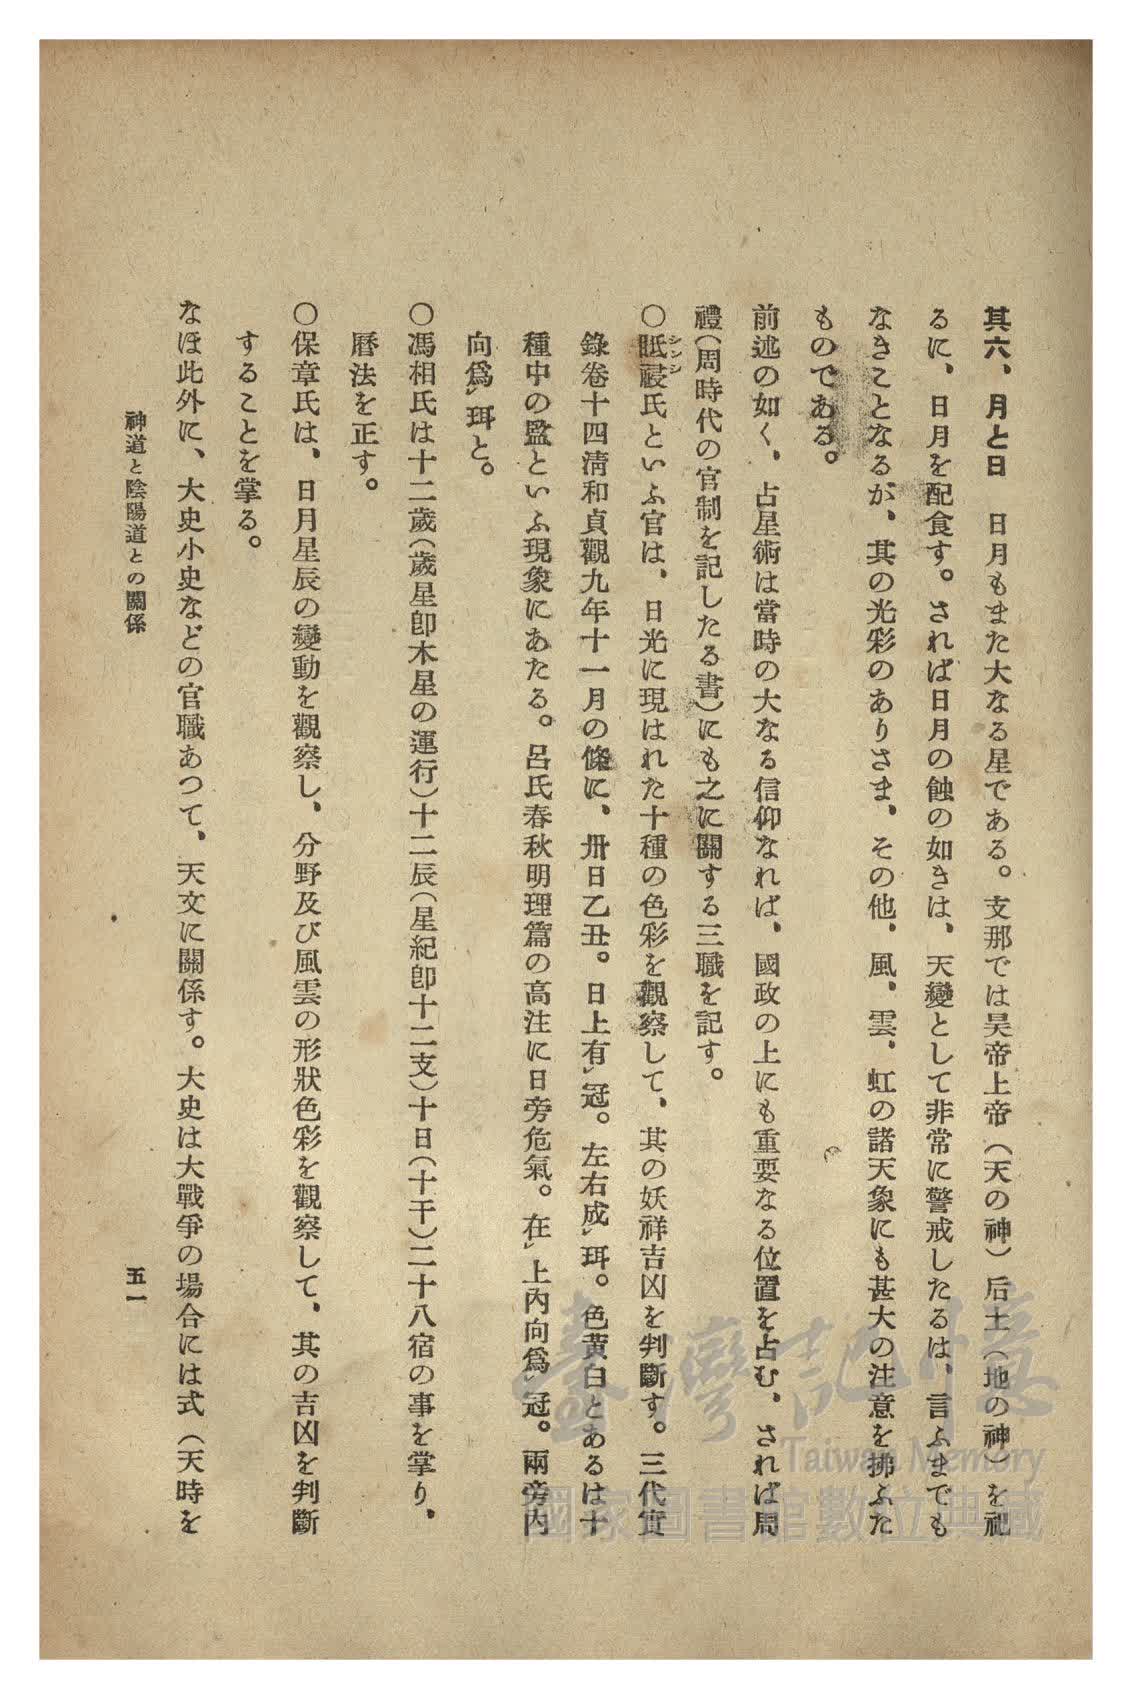 其六、月と日　日月もまた大なる星である。支那では昊帝上帝（天の神）后土（地の神）を祀
るに、日月を配食す。されば日月の蝕の如きは、天變として非常に警戒したるは、言ふまでも
なきことなるが、其の光彩のありさま、その他、風、雲、虹の諸天象にも甚大の注意を拂ふた
ものである。
前述の如く、占星術は當時の大なる信仰なれば、國政の上にも重要なる位置を占む、されば周
禮（周時代の官制を記したる書）にも之に關する三職を記す。
〇眡祲氏といふ官は、日光に現はれた十種の色彩を觀察して、其の妖祥吉凶を判斷す。三代實
シンシン
錄卷十四淸和貞觀九年十一月の條に、卅日乙丑。日上有レ冠。左右成レ珥。色黃白とあるは十
種中の監といふ現象にあたる。呂氏春秋明理篇の高注に日旁危氣。在レ上內向爲レ冠。兩旁內
向爲レ珥と。
〇馮相氏は十二歲（歲星卽木星の運行）十二辰（星紀卽十二支）十日（十干）二十八宿の事を掌り、
曆法を正す。
〇保章氏は、日月星辰の變動を觀察し、分野及び風雲の形狀色彩を觀察して、其の吉凶を判斷
することを掌る。
なほ此外に、大史小史などの官職あつて、天文に關係す。大史は大戰爭の場合には式（天時を
神道と陰陽道との關係
五一
臺灣記憶
Taiwan Memory
國家圖書館數位典藏